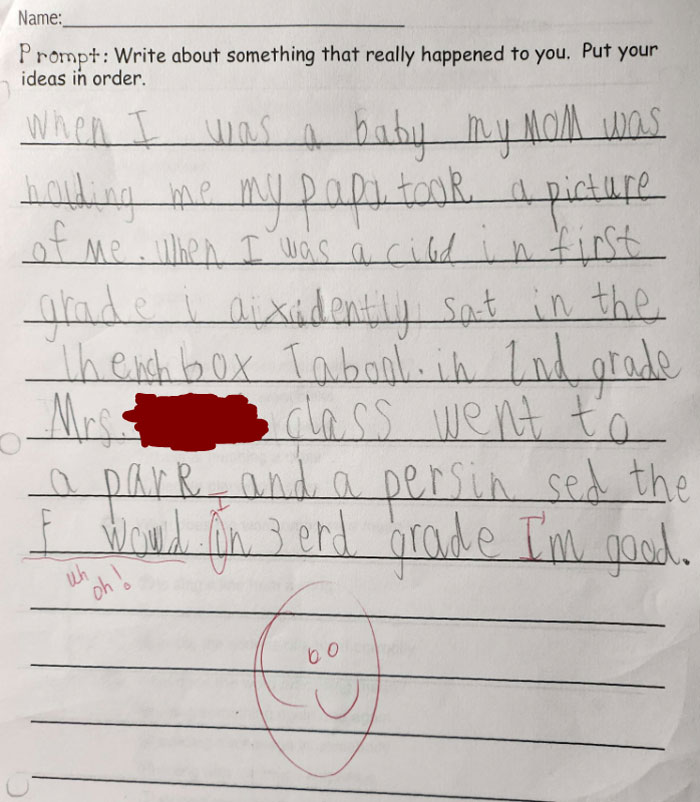 Name:
Prompt: Write about something that really happened to you. Put your
ideas in order.
when I was a baby my MOM was
holding me my papa took a picture
of me. when I was a cild in first
grade i aixidently sat in the
lhench box Tabool. in 2nd grade
Mrs. class went to
a park and a persin sed the
I
F word. in 3 erd grade I'm good.
uh
oh!